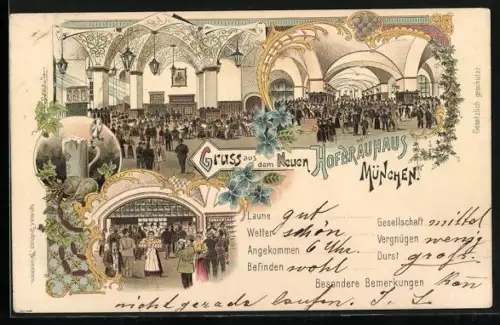 Gruss aus dem Neuen HOFBRÄUHAUS
MÜNCHEN.
Gesetzlich geschützt
Laune gut
Wetter schön
Angekommen 6 Uhr.
Befinden wohl
Gesellschaft mittel
Vergnügen wenig
Durst groß.
Besondere Bemerkungen Kan
nicht gerade laufen. J. L.